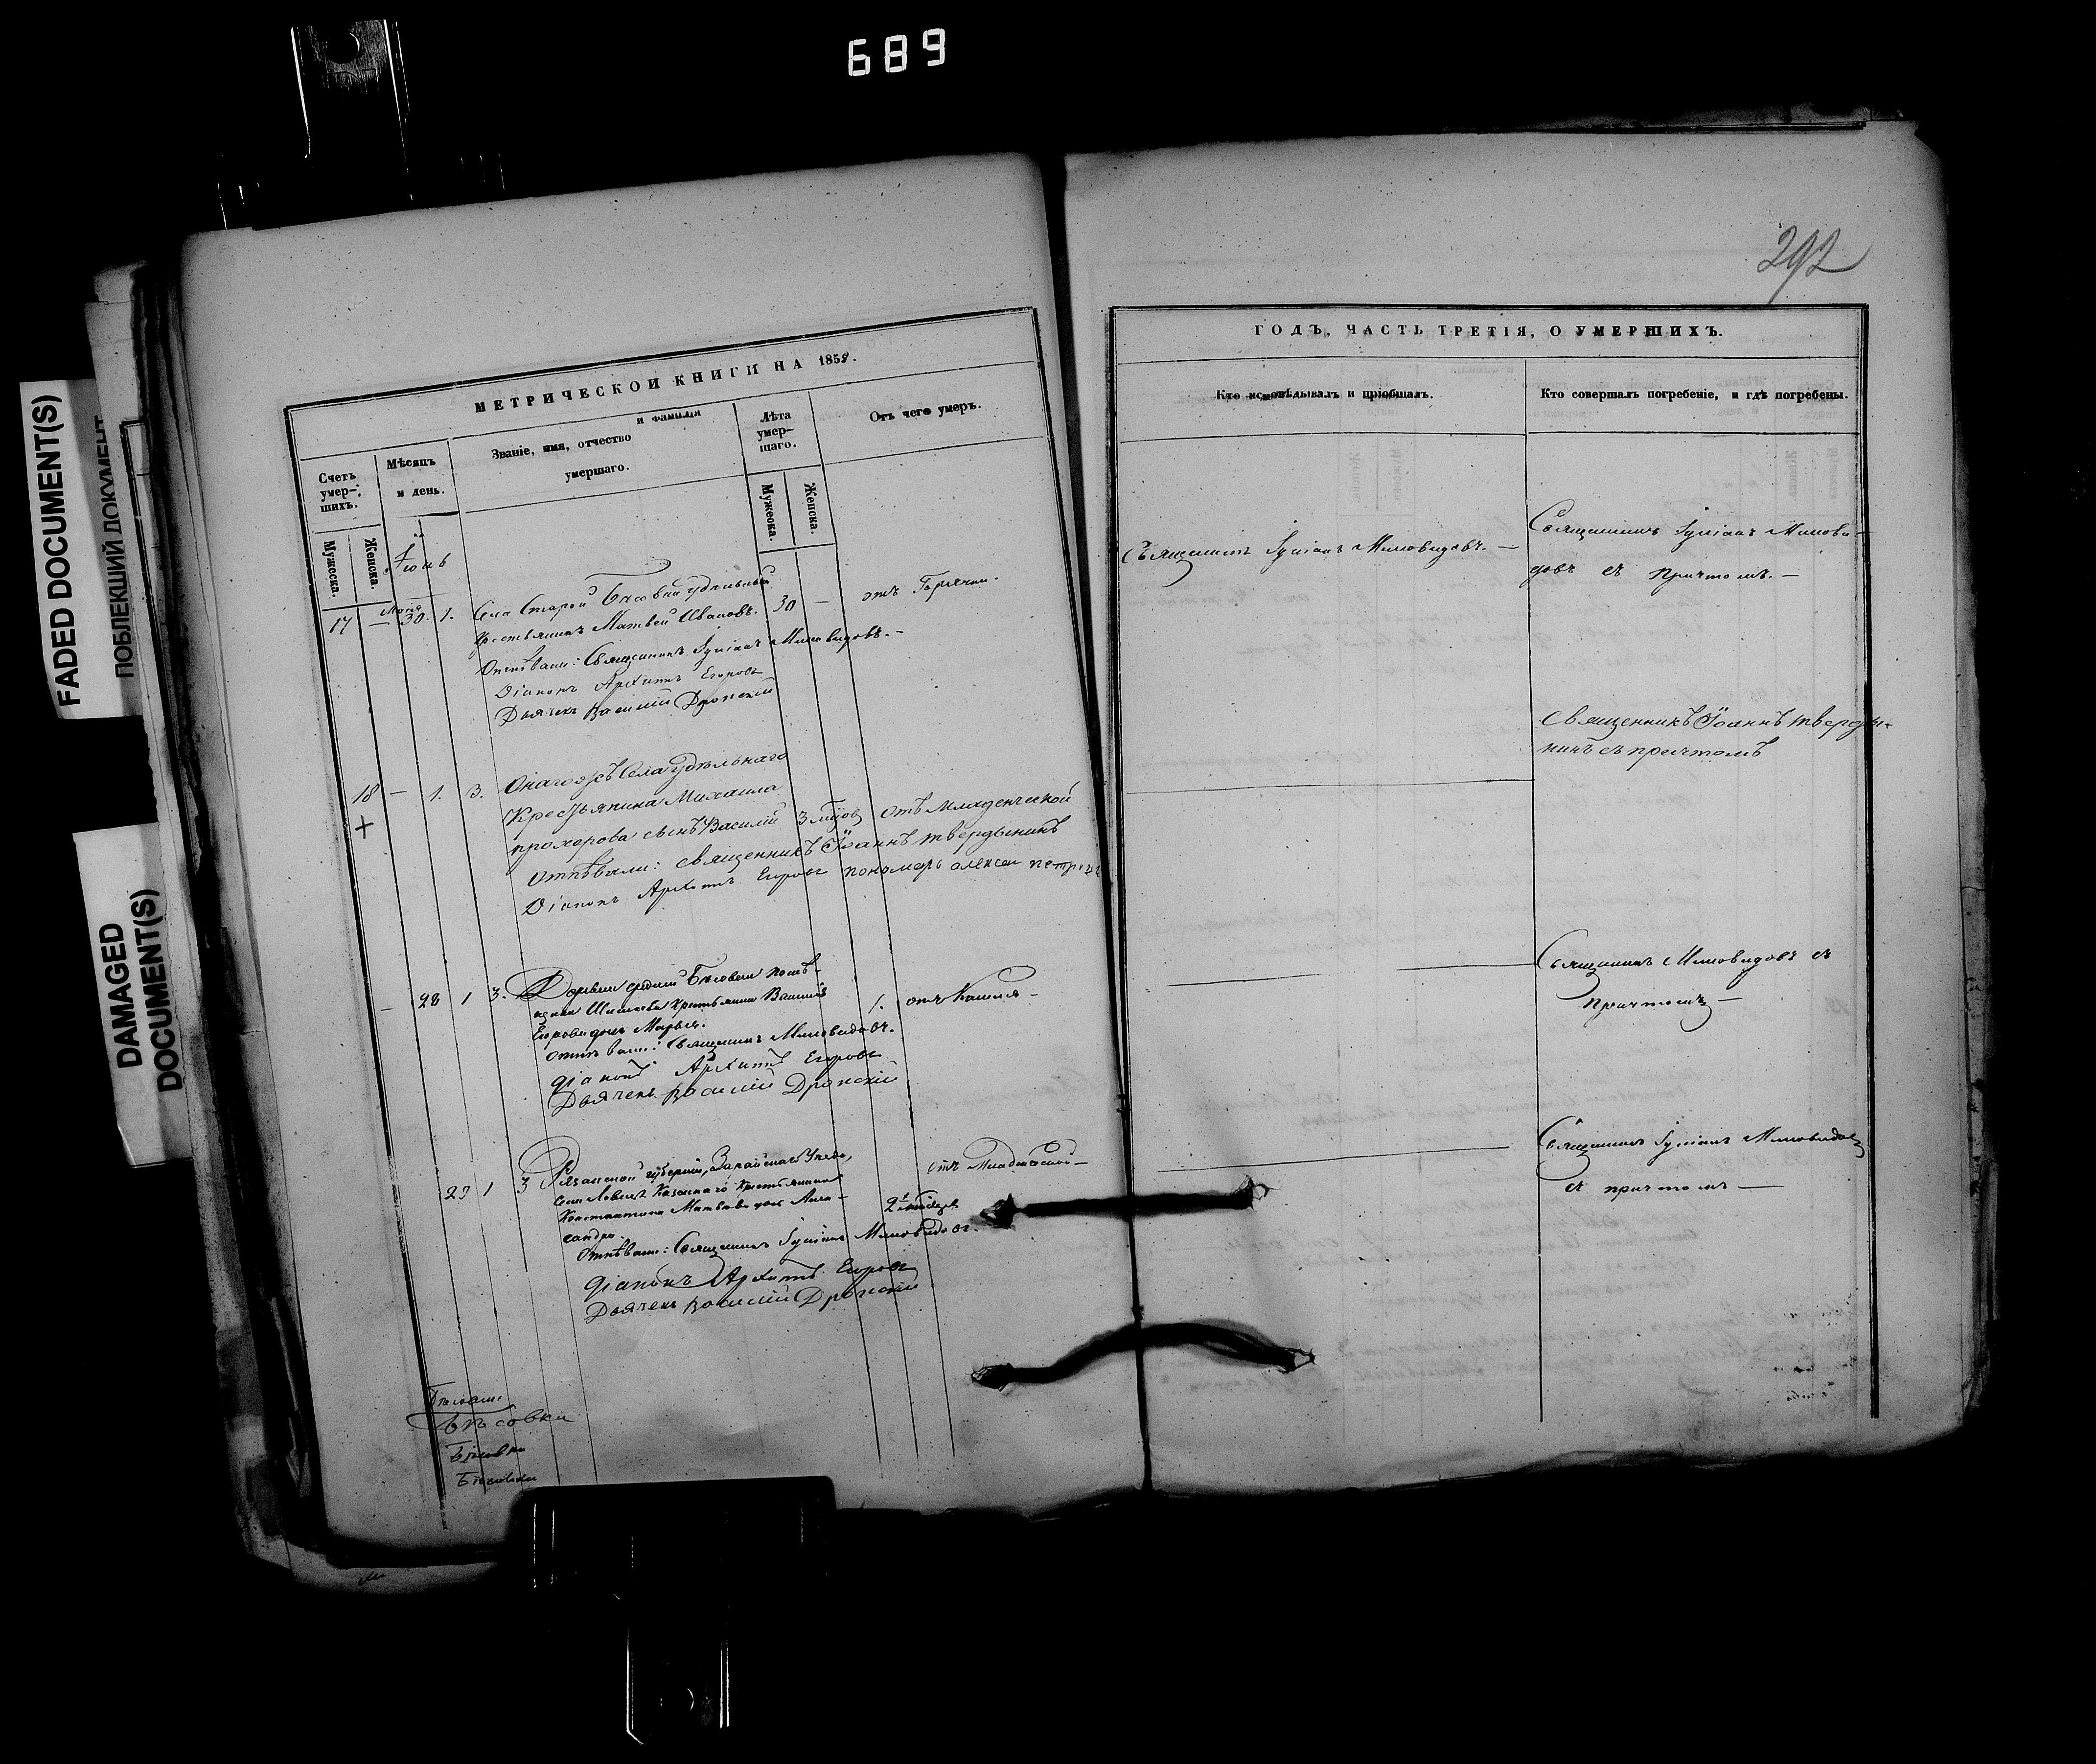 689
FADED DOCUMENT(S)
ПОБЛЕКШИЙ ДОКУМЕНТ
DAMAGED
DOCUMENT(S)
МЕТРИЧЕСКОЙ КНИГИ НА 1858.
Счетъ умер-шихъ.
Мужеска.
Женска.
Мѣсяцъ и день.
Званіе, имя, отчество и фамилія умершаго.
Лѣта умер-шаго.
Мужеска.
Женска.
Отъ чего умеръ.
Іюнь
17 — Мая 30. 1. Села Старой Бѣсовки удѣльный 30 — отъ Горячки.
Крестьянинъ Матвей Ивановъ.
Отпѣвали: Священникъ Луліанъ Миловидовъ. —
Діаконъ Архиппъ Егоровъ
Дьячекъ Василій Дронскій
18 — 1. 3. Онагожъ Села удѣльнаго
+ Крестьянина Михаила
прохорова сынъ Василій 3 отъ Младенческой
отпѣвали: священникъ Іоаннъ твердынинъ
Діаконъ Архиппъ Егоровъ пономарь алексей
— 28 1 3. Деревни Бѣсовки помѣ-
щика Крестьянина Василія 1. отъ Кашля —
Егорова дочь Марья.
отпѣвали: Священникъ Миловидовъ.
діаконъ Архиппъ Егоровъ
Дьячекъ Василій Дронскій
29 1 3 Рязанской губерніи, Зарайскаго Уѣзда, отъ Младенческой —
Села Ловецъ Казеннаго Крестьянина
Константина Матвѣева дочь Алек-
сандра 2
Отпѣвали: Священникъ Луліанъ Миловидовъ.
діаконъ Архиппъ Егоровъ
Дьячекъ Василій Дронскій
Бѣсовки
Бѣсовки
Бѣсовки
292
ГОДЪ, ЧАСТЬ ТРЕТІЯ, О УМЕРШИХЪ.
Кто исповѣдывалъ и пріобщалъ.
Кто совершалъ погребеніе, и гдѣ погребены.
Священникъ Луліанъ Миловидовъ. —
Священникъ Луліанъ Милови-
довъ съ Причтомъ. —
Священникъ Іоаннъ тверды-
нинъ съ причтомъ
Священникъ Миловидовъ съ
Причтомъ —
Священникъ Луліанъ Миловидовъ
съ причтомъ —